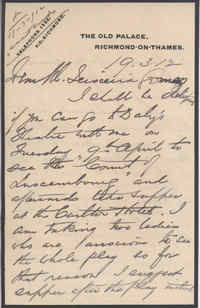 THE OLD PALACE,
RICHMOND-ON-THAMES.
19.3.12
Dear Mr.
I shall be
if you can go to Daly's
Theatre with me on
Tuesday 9th April to
see the "Count of
Luxembourg" and
afterwards to supper
at the Carlton Hotel. I
am taking two ladies
who are anxious to see
the whole play so for
that reason I suggest
supper after the play